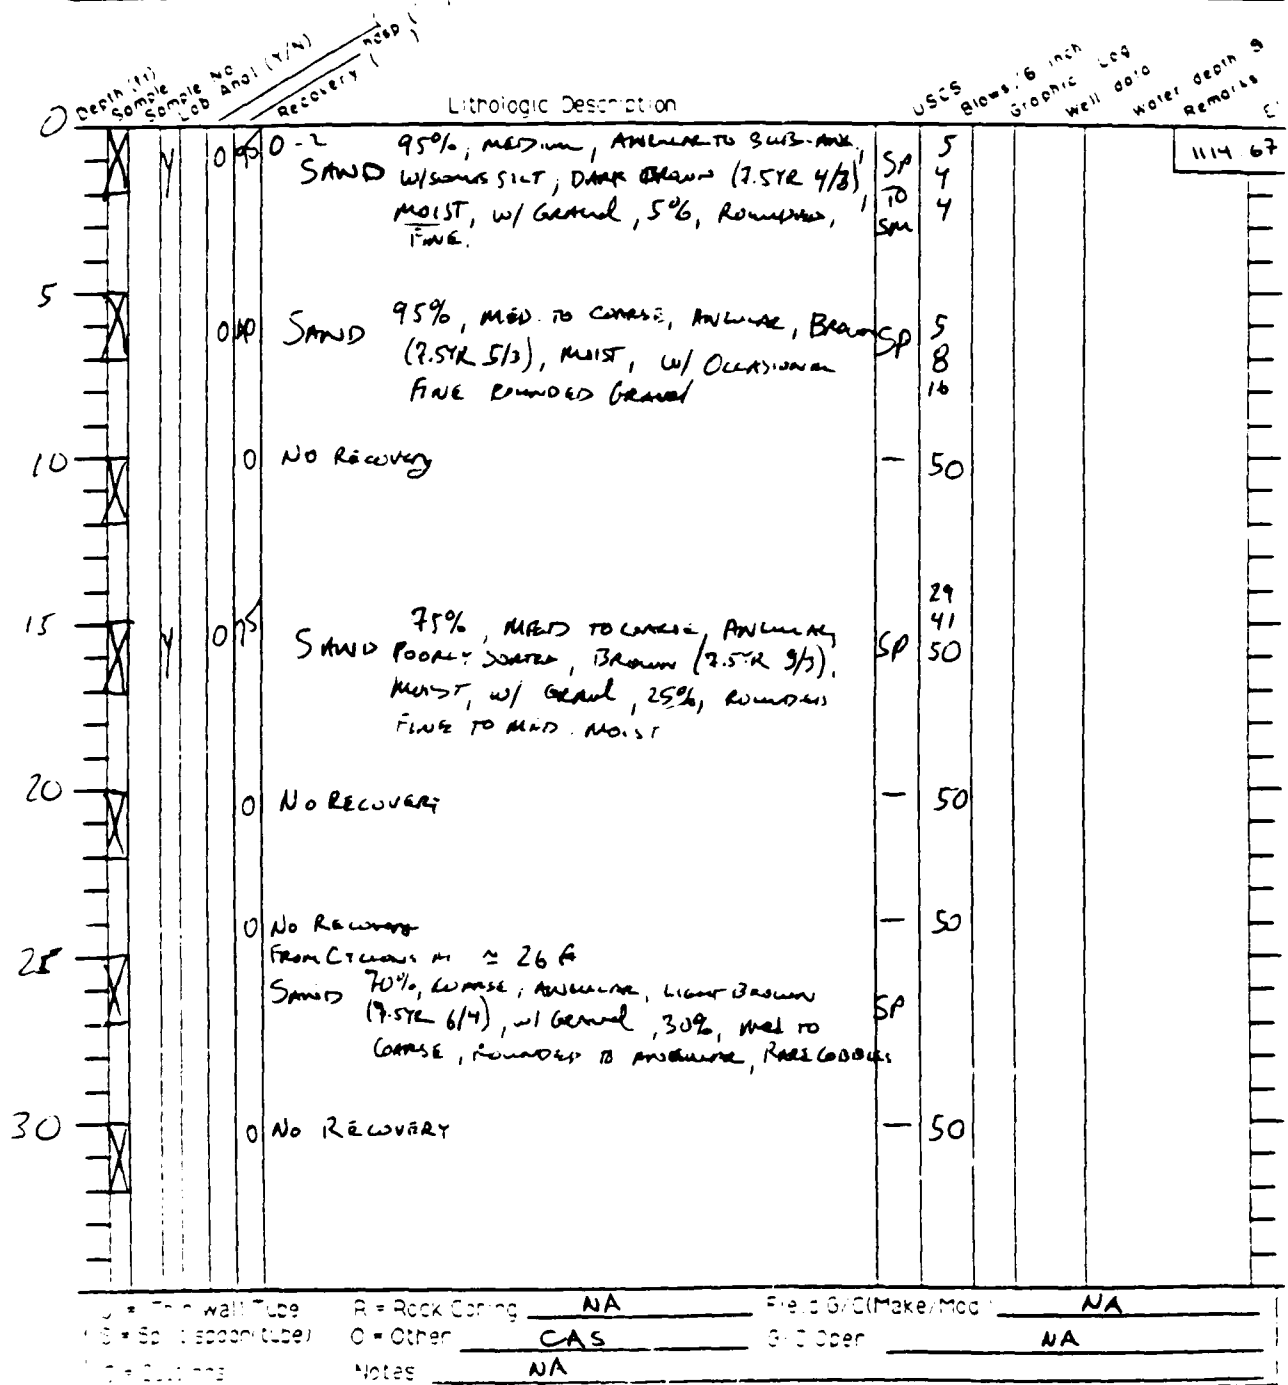 Depth (ft)
Sample
Sample No
Lab Anal (Y/N)
Recovery ( )
Lithologic Description
USCS
Blows/6 inch
Graphic Log
Well data
Water depth
Remarks
0
Y 0 95 0-2 95%, MEDIUM, ANGULAR TO SUB-ANG., 5 1114.67
SAND W/SOME SILT, DARK BROWN (7.5YR 4/3), SP 4
MOIST, W/ GRAVEL, 5%, ROUNDED, TO 4
FINE. SM
5
0 SAND 95%, MED. TO COARSE, ANGULAR, BROWN SP 5
(7.5YR 5/3), MOIST, W/ OCCASIONAL 8
FINE ROUNDED GRAVEL 16
10 0 NO RECOVERY — 50
29
15 Y 0 75 75%, MED TO COARSE, ANGULAR, 41
SAND POORLY SORTED, BROWN (7.5YR 5/3), SP 50
MOIST, W/ GRAVEL, 25%, ROUNDED
FINE TO MED. MOIST
20 0 NO RECOVERY — 50
0 NO RECOVERY — 50
25 FROM CYCLONE AT ≈ 26 ft
SAND 70%, COARSE, ANGULAR, LIGHT BROWN SP
(7.5YR 6/4), w/ GRAVEL, 30%, MED TO
COARSE, ROUNDED TO ANGULAR, RARE COBBLES
30 0 NO RECOVERY — 50
= Thin Wall Tube R = Rock Coring NA Field G/C(Make/Mod) NA
S = Split spoon(tube) O = Other CAS G/C Oper NA
C = Cuttings Notes NA